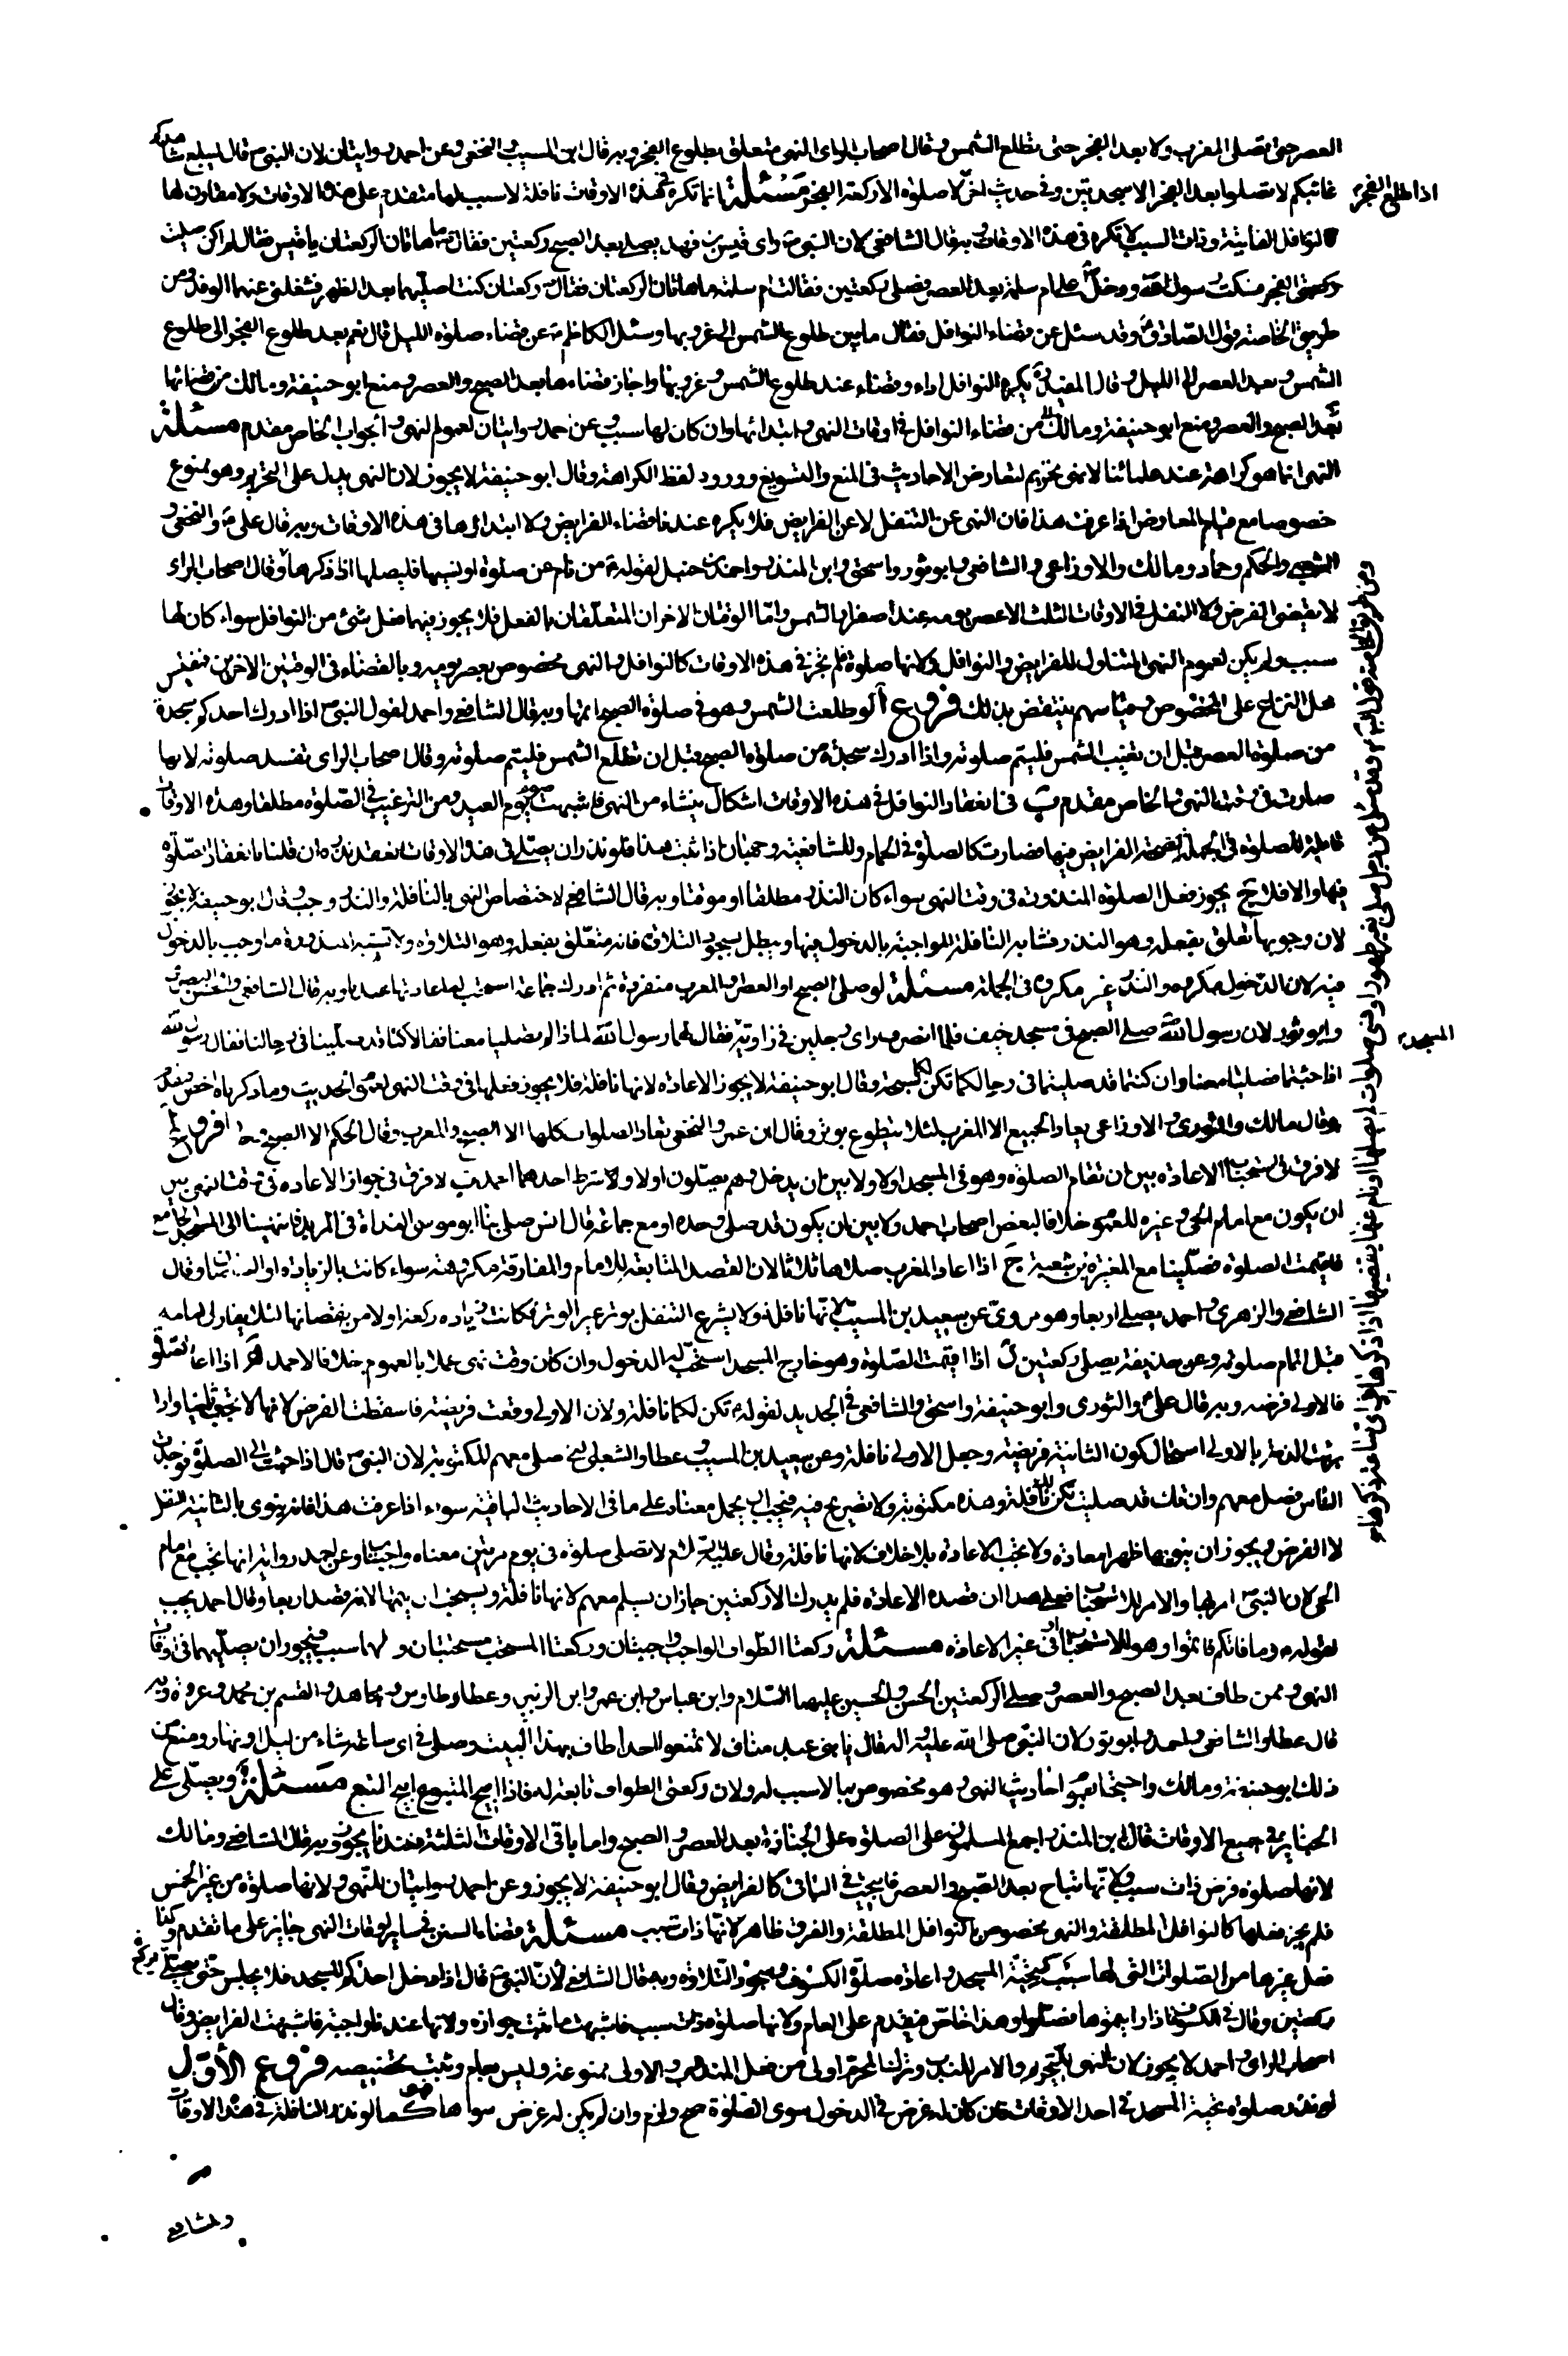 العصر حتى تصلى المغرب ولا بعد الفجر حتى تطلع الشمس وقال اصحاب الراى النهى متعلق بطلوع الفجر وبه قال ابن المسيب والنخعى وعن احمد روايتان لان النبى قال ليبلغ شاهدكم
غائبكم لا تصلوا بعد الفجر الا سجدتين وفى حديث اخر لا صلوة الا ركعتى الفجر مسئلة انما تكره فى هذه الاوقات نافلة لا سبب لها متقدم على هذه الاوقات ولا مقارن لها
اذا طلع الفجر
كالنوافل الفائتة وذات السبب لا تكره فى هذه الاوقات وبه قال الشافعى لان النبى راى قيس بن فهد يصلى بعد الصبح ركعتين فقال ما هاتان الركعتان يا قيس فقال لم اكن صليت
ركعتى الفجر فسكت رسول الله ودخل على ام سلمة بعد العصر فصلى ركعتين فقالت ام سلمة ما هاتان الركعتان فقال ركعتان كنت اصليهما بعد الظهر فشغلنى عنهما الوفد ومن
طريق الخاصة قول الصادق وقد سئل عن قضاء النوافل فقال ما بين طلوع الشمس الى غروبها وسئل الكاظم عن قضاء صلوة الليل قال نعم بعد طلوع الفجر الى طلوع
الشمس وبعد العصر الى الليل وقال المفيد يكره النوافل اداء وقضاء عند طلوع الشمس وغروبها واجاز قضاءها بعد الصبح والعصر ومنع ابو حنيفة ومالك من قضائها
بعد الصبح والعصر ومنع ابو حنيفة ومالك من قضاء النوافل فى اوقات النهى وابتدائها وان كان لها سبب وعن احمد روايتان لعموم النهى والجواب الخاص مقدم مسئلة
النهى انما هو كراهة عند علمائنا لا نهى تحريم لتعارض الاحاديث فى المنع والتسويغ وورود لفظ الكراهة وقال ابو حنيفة لا يجوز لان النهى يدل على التحريم وهو ممنوع
خصوصا مع قيام المعارض اذا عرفت هذا فان النهى عن التنفل لا عن الفرايض فلا يكره عندنا قضاء الفرايض ولا ابتداؤها فى هذه الاوقات وبه قال على والنخعى و
الشعبى والحكم وحماد ومالك والاوزاعى والشافعى وابو ثور واسحق وابن المنذر واحمد بن حنبل لقوله من نام عن صلوة او نسيها فليصلها اذا ذكرها وقال اصحاب الراى
لا يقضى الفرض ولا النفل فى الاوقات الثلث الا عصر يومه عند اصفرار الشمس واما الوقتان الاخران المتعلقان بالفعل فلا يجوز فيهما فعل شئ من النوافل سواء كان لها
سبب او لم يكن لعموم النهى المتناول للفرايض والنوافل ولانها صلوة فلم تجز فى هذه الاوقات كالنوافل والنهى مخصوص بعصر يومه وبالقضاء فى الوقتين الاخرين فنقيس
محل النزاع على المخصوص وقياسهم ينتقض بذلك فروع ا لو طلعت الشمس وهو فى صلوة الصبح اتمها وبه قال الشافعى واحمد لقول النبى اذا ادرك احدكم سجدة
من صلوة العصر قبل ان تغيب الشمس فليتم صلوته واذا ادرك سجدة من صلوة الصبح قبل ان تطلع الشمس فليتم صلوته وقال اصحاب الراى تفسد صلوته لانها
صارت فى وقت النهى والخاص مقدم ب فى انعقاد النوافل فى هذه الاوقات اشكال ينشاء من النهى فاشبهت صوم يوم العيد ومن الترغيب فى الصلوة مطلقا وهذه الاوقات
قابلة للصلوة فى الجملة لصحة الفرايض فيها فصارت كالصلوة فى الحمام وللشافعية وجهان اذا ثبت هذا فلو نذر ان يصلى فى هذه الاوقات انعقد نذره ان قلنا بانعقاد الصلوة
فيها والا فلا ج يجوز فعل الصلوة المنذورة فى وقت النهى سواء كان النذر مطلقا او موقتا وبه قال الشافعى لاختصاص النهى بالنافلة والنذر وجب وقال ابو حنيفة لا يجوز
لان وجوبها تعلق بفعله وهو النذر فشابه النافلة الواجبة بالدخول فيها ويبطل بسجود التلاوة فانه متعلق بفعله وهو التلاوة ولا تشبه المنذورة ما وجب بالدخول
فيه لان الدخول مكروه والنذر غير مكروه فى الجملة مسئلة لو صلى الصبح او العصر او المغرب منفردا ثم ادرك جماعة استحب له اعادتها عندنا وبه قال الشافعى والحسن البصرى
وابو ثور لان رسول الله صلى الصبح فى مسجد خيف فلما انصرف راى رجلين فى زاوية فقال لهما رسول الله لما ذا لم تصليا معنا فقالا كنا قد صلينا فى رحالنا فقال رسول الله
المسجد
اذا جئتما فصليا معنا وان كنتما قد صليتما فى رحالكما تكن لكما سبحة وقال ابو حنيفة لا يجوز الاعادة لانها نافلة فلا يجوز فعلها فى وقت النهى لعموم الحديث وما ذكرناه اخص فيقدم
وقال مالك والثورى والاوزاعى يعاد الجميع الا المغرب لئلا يتطوع بوتر وقال ابن عمر والنخعى تعاد الصلوات كلها الا الصبح والمغرب وقال الحكم الا الصبح وحدها فروع ا
لا فرق فى استحباب الاعادة بين ان تقام الصلوة وهو فى المسجد اولا ولا بين ان يدخل وهم يصلون اولا ولا شرط احدهما احمد ب لا فرق فى جواز الاعادة فى وقت النهى بين
ان يكون مع امام الحى وغيره للعموم خلافا لبعض اصحاب احمد ولا بين ان يكون قد صلى وحده او مع جماعة قال انس صلى بنا ابو موسى الغداة فى المربد فانتهينا الى المسجد الجامع
فاقيمت الصلوة فصلينا مع المغيرة بن شعبة ج اذا اعاد المغرب صلاها ثلاثا لان القصد المتابعة للامام والمفارقة مكروهة سواء كانت بالزيادة او النقصان وقال
الشافعى والزهرى واحمد يصلى اربعا وهو مروى عن سعيد بن المسيب لانها نافلة ولا يشرع التنفل بوتر غير الوتر فكانت زيادة ركعة اولى من نقصانها لئلا يفارق امامه
قبل اتمام صلوته وعن حذيفة يصلى ركعتين د اذا اقيمت الصلوة وهو خارج المسجد استحب له الدخول وان كان وقت نهى عملا بالعموم خلافا لاحمد ه اذا اعاد الصلوة
فالاولى فرضه وبه قال على والثورى وابو حنيفة واسحق والشافعى فى الجديد لقوله تكن لكما نافلة ولان الاولى وقعت فريضة فاسقطت الفرض لانها لا تجب ثانيا واذا
برئت الذمة بالاولى استحال كون الثانية فريضة وجعل الاولى نافلة وعن سعيد بن المسيب وعطا والشعبى التى صلى معهم المكتوبة لان النبى قال اذا جئت الى الصلوة فوجدت
الناس فصل معهم وان كنت قد صليت تكن لك نافلة وهذه مكتوبة ولا تصريح فيه فيجب ان يحمل معناه على ما فى الاحاديث الباقية سواء اذا عرفت هذا فانه ينوى بالثانية النفل
لا الفرض ويجوز ان ينويها ظهرا معادة ولا تجب الاعادة بلا خلاف لانها نافلة وقال عليه السلام لا تصلى صلوة فى يوم مرتين معناه واجبتان وعن احمد رواية انها تجب مع امام
الحى لان النبى امر بها والامر للاستحباب فعلى هذا ان قصد الاعادة فلم يدرك الا ركعتين جاز ان يسلم معهم لانها نافلة ويستحب ان يتمها لانه قصد اربعا وقال احمد يجب
لقوله وما فاتكم فاتموا وهو للاستحباب او فى غير الاعادة مسئلة ركعتا الطواف الواجب واجبتان وركعتا المستحب مستحبتان ولهما سبب فيجوز ان يصليهما فى اوقات
النهى وممن طاف بعد الصبح والعصر وصلى الركعتين الحسن والحسين عليهما السلام وابن عباس وابن عمر وابن الزبير وعطا وطاوس ومجاهد والقسم بن محمد وعروة وبه
قال عطا والشافعى واحمد وابو ثور لان النبى صلى الله عليه واله قال يا بنى عبد مناف لا تمنعوا احدا طاف بهذا البيت وصلى فى اى ساعة شاء من ليل او نهار ومنع من
ذلك ابو حنيفة ومالك واحتجا بعموم احاديث النهى وهو مخصوص بما لا سبب له ولان ركعتى الطواف تابعة له فاذا ابيح المتبوع ابيح التبع مسئلة ويصلى على
الجنايز فى جميع الاوقات قال ابن المنذر اجمع المسلمون على الصلوة على الجنازة بعد العصر والصبح واما باقى الاوقات الثلثة فعندنا يجوز وبه قال الشافعى ومالك
لانها صلوة فرض ذات سبب ولانها تباح بعد الصبح والعصر فابيحت فى الباقى كالفرايض وقال ابو حنيفة لا يجوز وعن احمد روايتان للنهى ولانها صلوة من غير الخمس
فلم يجز فعلها كالنوافل المطلقة والنهى مخصوص بالنوافل المطلقة والفرق ظاهر لانها ذات سبب مسئلة قضاء السنن فى ساير اوقات النهى جايز على ما تقدم وكذا
فعل غيرها من الصلوات التى لها سبب كتحية المسجد واعادة صلوة الكسوف وسجود التلاوة وبه قال الشافعى لان النبى قال اذا دخل احدكم المسجد فلا يجلس حتى يصلى
ركعتين وقال فى الكسوف فاذا رايتموها فصلوا وهذا خاص فيقدم على العام ولانها صلوة ذات سبب فاشبهت ما ثبت جوازه ولانها عندنا واجبة فاشبهت الفرايض وقال
اصحاب الراى واحمد لا يجوز لان النهى للتحريم والامر للندب وترك المحرم اولى من فعل المندوب والاولى ممنوعة وليس بعام وثبت تخصيصه فروع الاول
لو نذر صلوة تحية المسجد فى احد الاوقات فان كان له غرض فى الدخول سوى الصلوة صح ولزم وان لم يكن له غرض سواها فهو كما لو نذر النافلة فى هذه الاوقات
ومن طريق الخاصة قول الباقر وقد سئل عن رجل صلى بغير طهور او نسى صلوات لم يصلها او نام عنها يقضيها اذا ذكرها فى اى ساعة ذكرها
وللشافعى